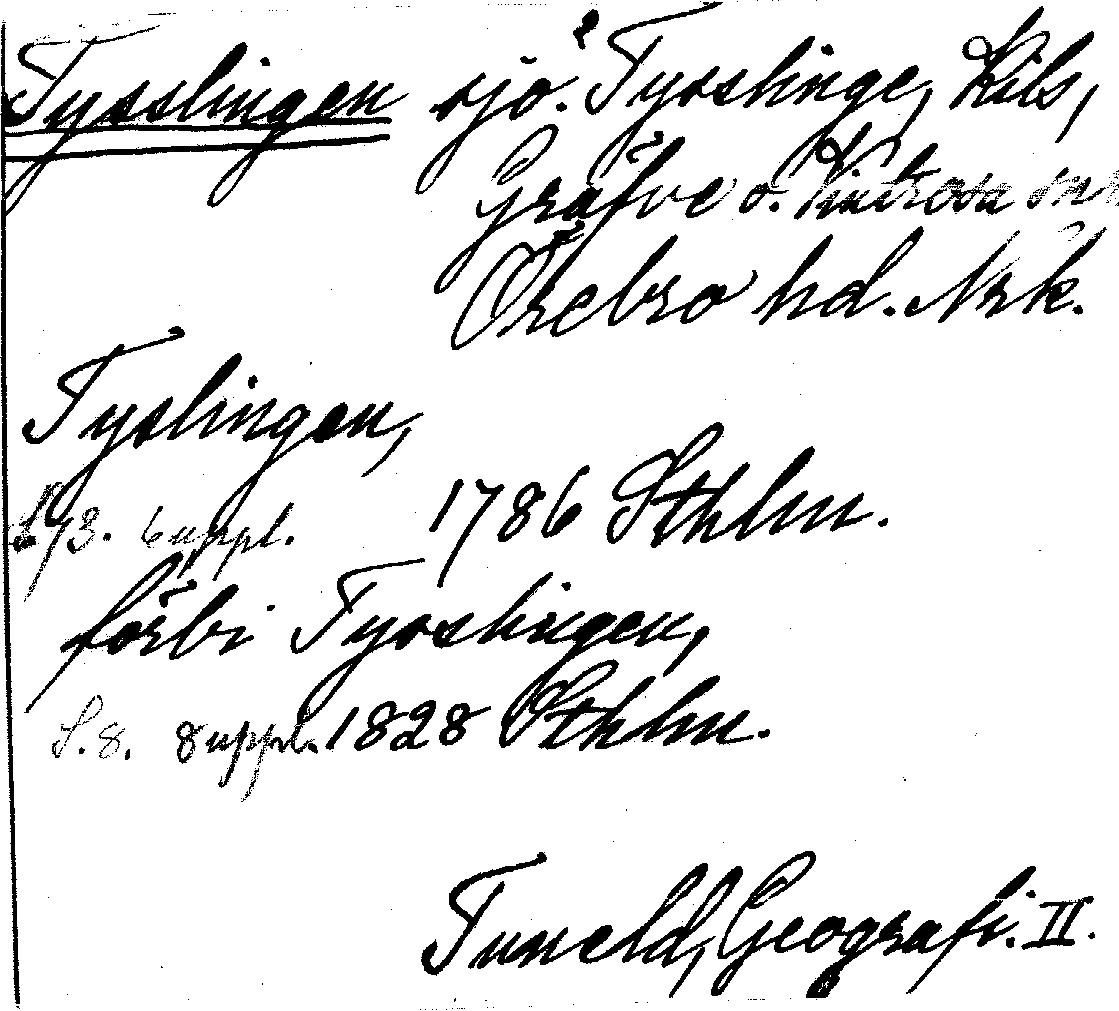 Tysslingen sjö. Tysslinge, Kils,
Gräfve o. Vintrosa snr
Örebro hd. Nrk.
Tyslingen,
6 uppl. 1786 Sthlm.
förbi Tysslingen,
S. 8. 8 uppl. 1828 Sthlm.
Tuneld, Geografi. II.